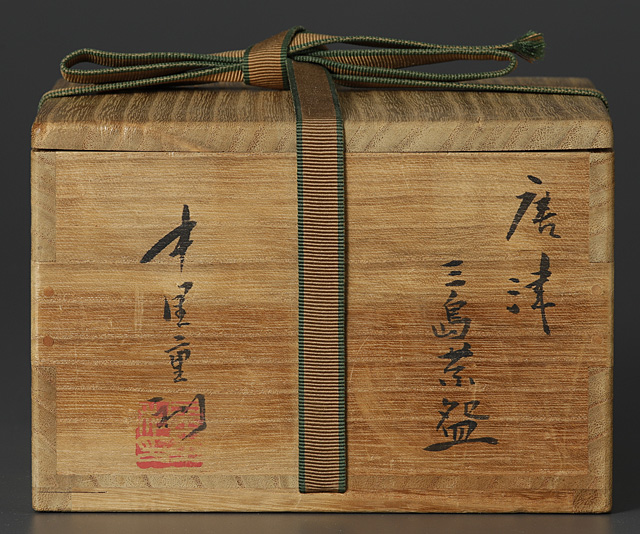 唐津
三島茶盌
中里重利